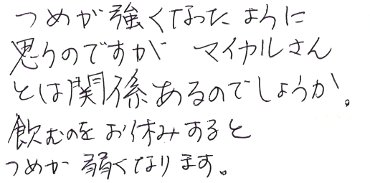 つめが強くなったように
思うのですが マイカルさん
とは関係あるのでしょうか。
飲むのをお休みすると
つめが弱くなります。